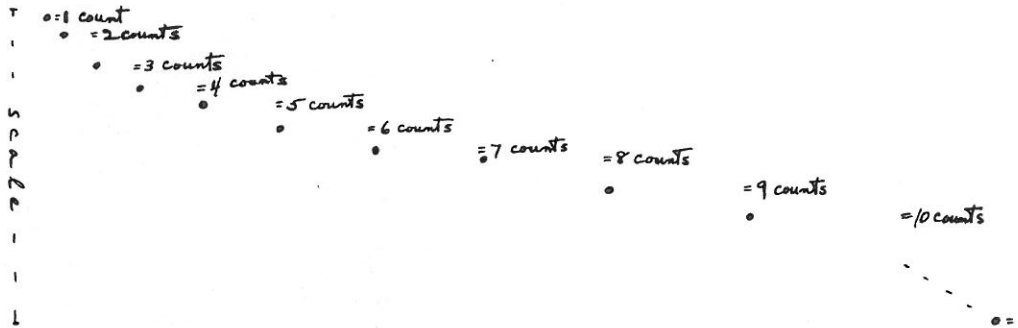 o = 1 count
= 2 counts
= 3 counts
= 4 counts
= 5 counts
= 6 counts
= 7 counts
= 8 counts
= 9 counts
= 10 counts
o =
scale